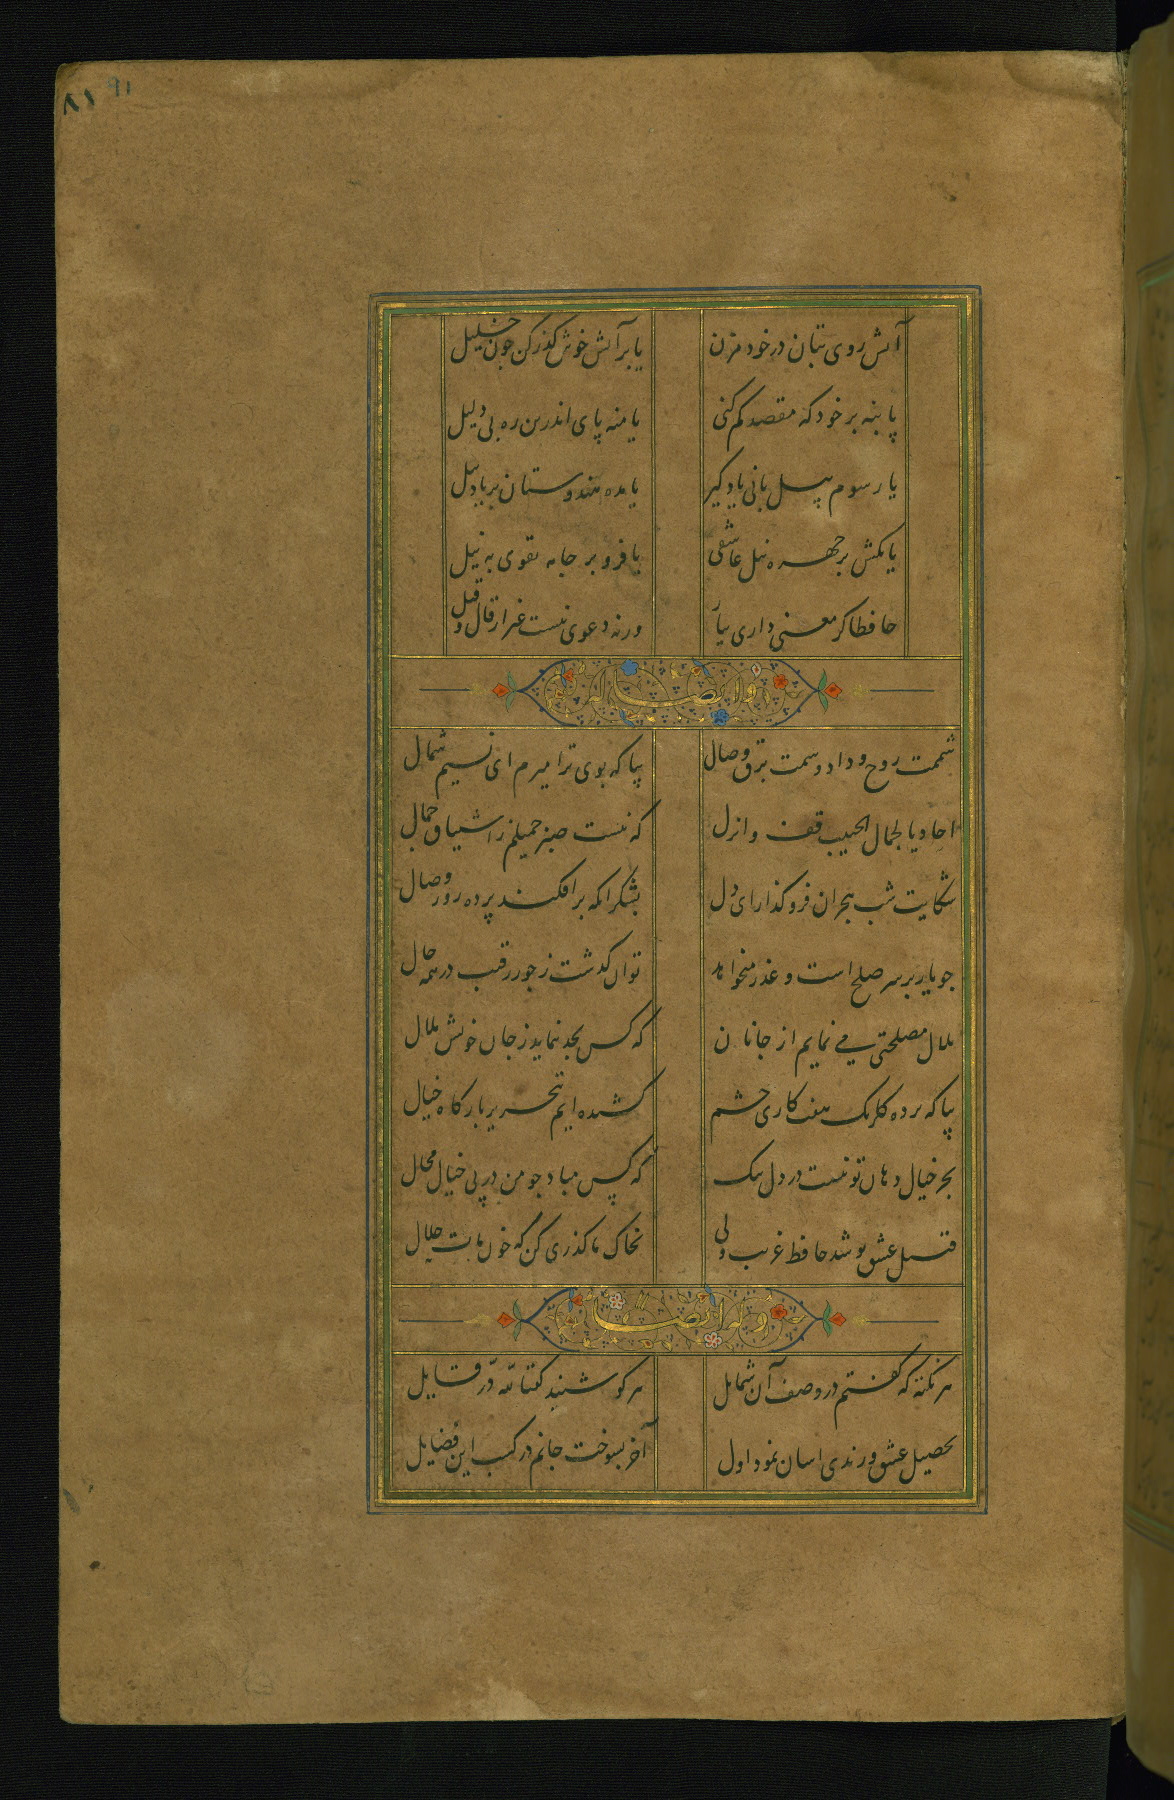 ۸۱ ۹۱
آتش روی بتان در خود مزن
یا بر آتش خوش گذر کن چون خلیل
یا بنه بر خود که مقصد گم کنی
یا منه پای اندرین ره بی دلیل
یا رسوم پیل بانی یاد گیر
یا مده هندوستان بر یاد پیل
یا مکش بر چهره نیل عاشقی
یا فرو بر جامه تقوی به نیل
حافظا گر معنی داری بیار
ورنه دعوی نیست غیر از قال و قیل
شممت روح وداد و شمت برق وصال
بیا که بوی ترا میرم ای نسیم شمال
احادیا لجمال الحبیب قف وانزل
که نیست صبر جمیلم ز اشتیاق جمال
شکایت شب هجران فرو گذار ای دل
بشکر انکه برافکند پرده روز وصال
چو یار بر سر صلح است و عذر میخواهد
توان گذشت ز جور رقیب در همه حال
ملال مصلحتی می نمایم از جانان
که کس بجد ننماید ز جان خویش ملال
بیا که پرده گلریز هفت کاری چشم
کشیده ایم بتحریر بارگاه خیال
بجز خیال دهان تو نیست در دل تنگ
که کس مباد چو من در پی خیال محال
قتیل عشق تو شد حافظ غریب ولی
بخاک ما گذری کن که خون مات حلال
وله ایضا
هر نکته که گفتم در وصف آن شمایل
هر کو شنید گفتا لله در قایل
تحصیل عشق و رندی اسان نمود اول
آخر بسوخت جانم در کسب این فضایل